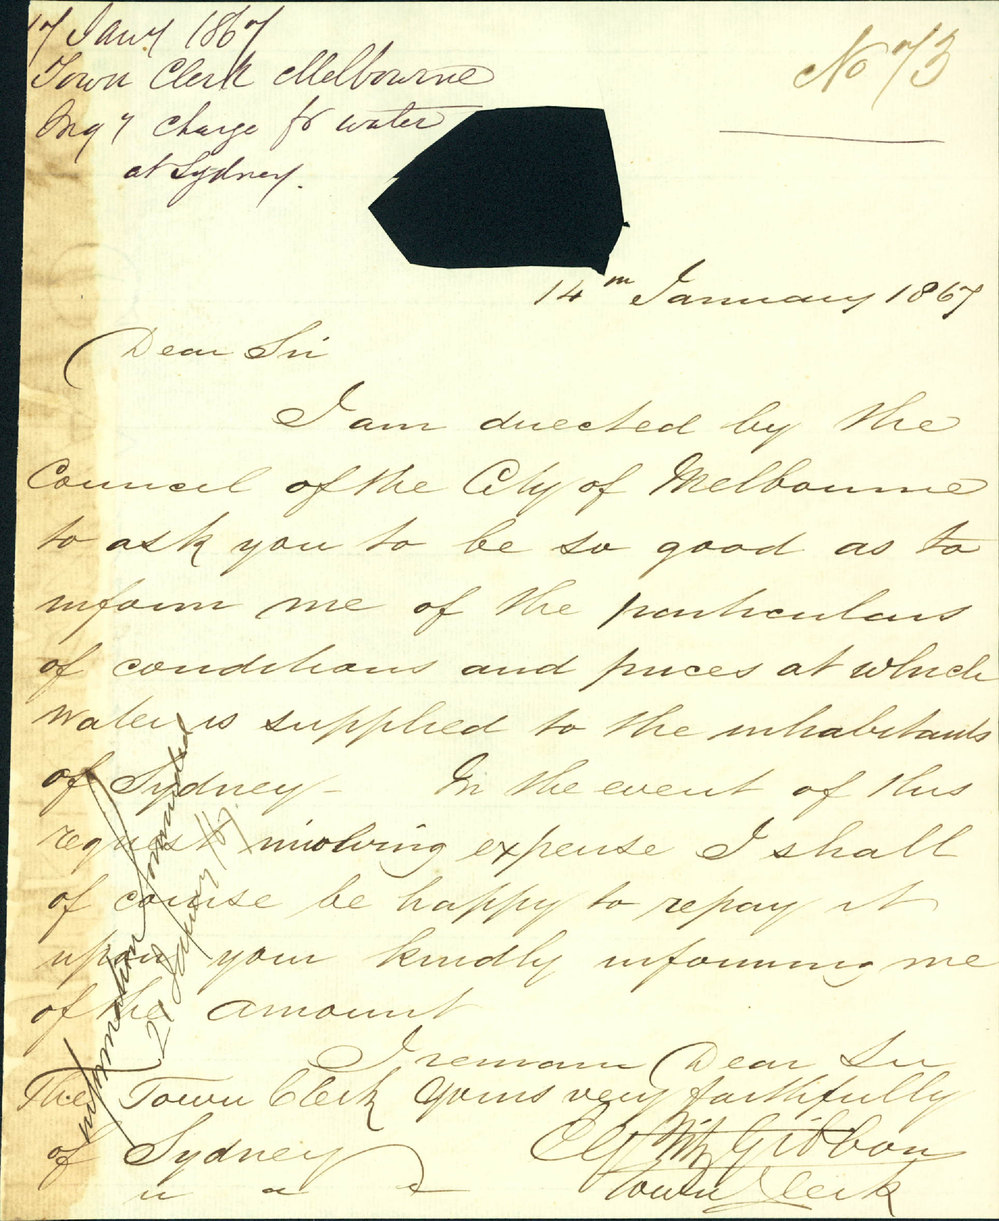 17 Jany 1867
Town Clerk Melbourne
Inqy charge for water
at Sydney.
No 73
14th January 1867
Dear Sir
I am directed by the
Council of the City of Melbourne
to ask you to be so good as to
inform me of the particulars
of conditions and prices at which
water is supplied to the inhabitants
of Sydney - In the event of this
request involving expense I shall
of course be happy to repay it
upon your kindly informing me
of the amount
I remain Dear Sir
Yours very faithfully
E G FitzGibbon
Town Clerk
The Town Clerk
of Sydney
Information forwarded
21 January /67.